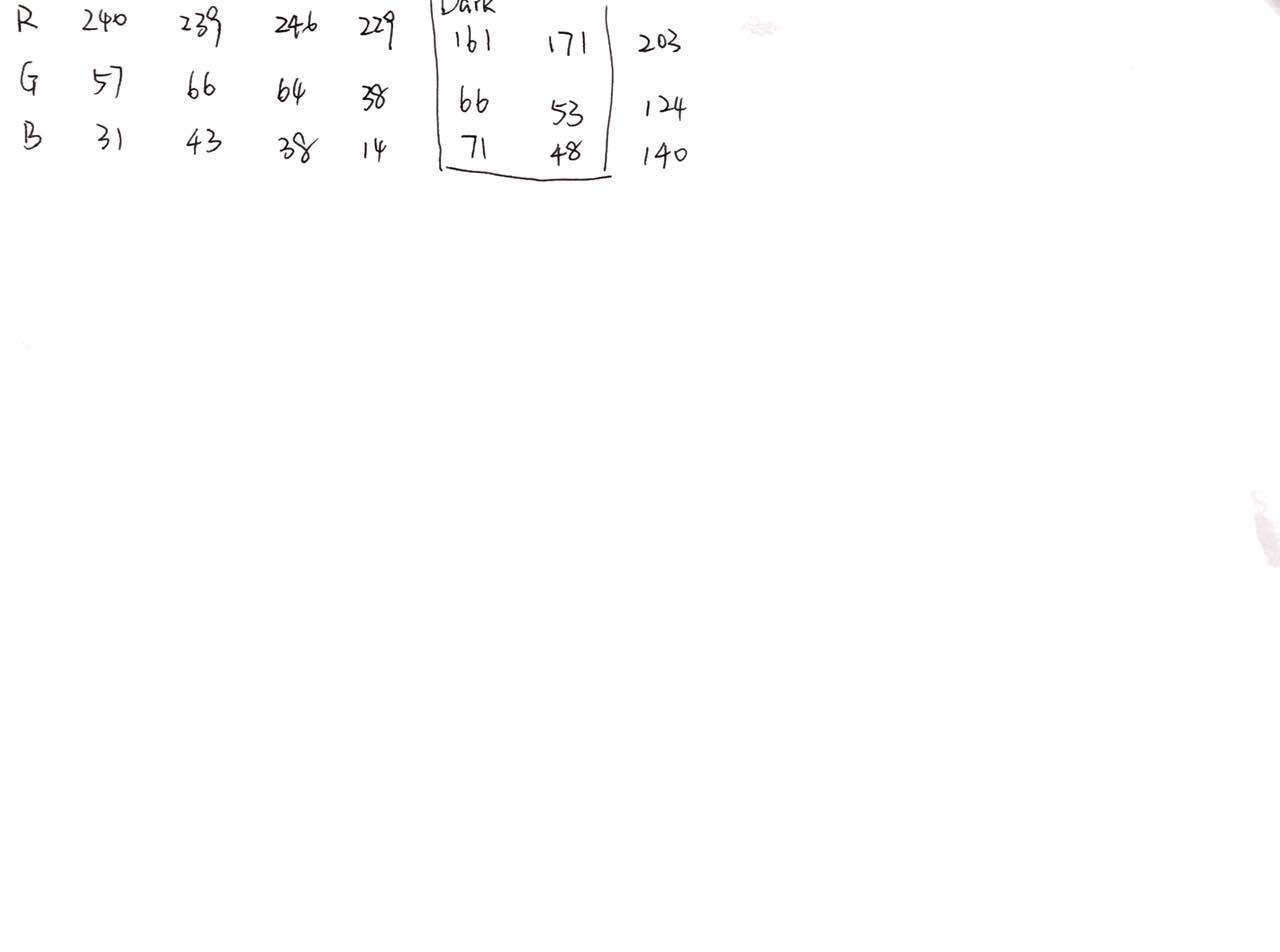 Dark
R 240 239 246 229 161 171 203
G 57 66 64 38 66 53 124
B 31 43 38 14 71 48 140